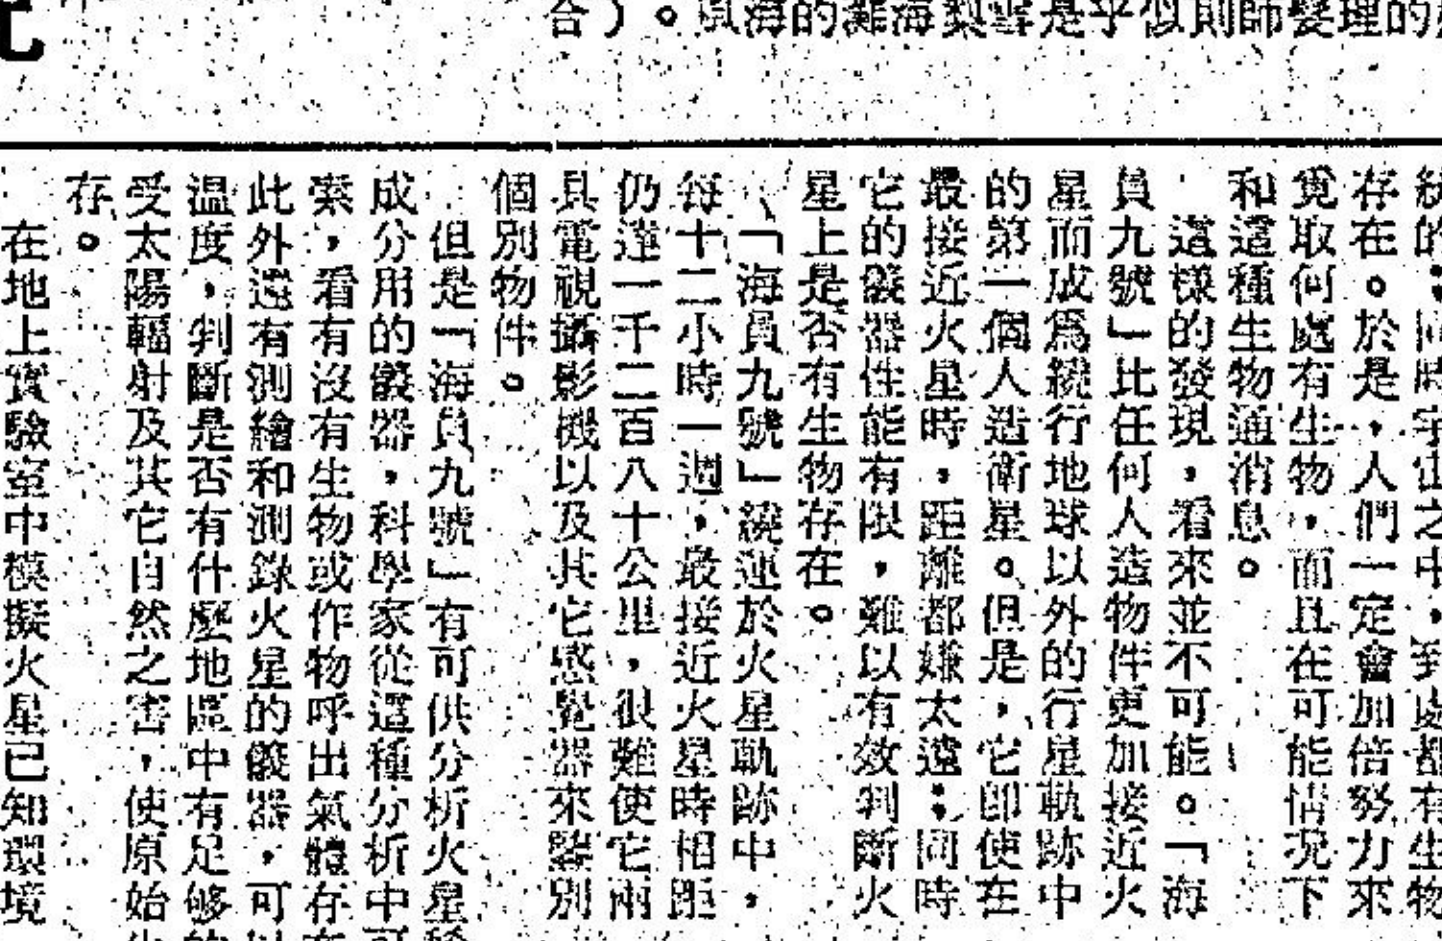 合）。風海的灘海與雲是乎似則師髮理的
統的；同時宇宙之中，到處都有生物
存在。於是，人們一定會加倍努力來
竟取何處有生物，而且在可能情況下
和這種生物通消息。
這樣的發現，看來並不可能。「海
員九號」比任何人造物件更加接近火
星而成為繞行地球以外的行星軌跡中
的第一個人造衛星。但是，它即使在
最接近火星時，距離都嫌太遠；同時
它的儀器性能有限，難以有效判斷火
星上是否有生物存在。
「海員九號」繞運於火星軌跡中，
每十二小時一週，最接近火星時相距
仍達一千二百八十公里，很難使它兩
具電視攝影機以及其它感覺器來鑒別
個別物件。
但是「海員九號」有可供分析火星
成分用的儀器，科學家從這種分析中可
索，看有沒有生物或作物呼出氣體存在
此外還有測繪和測錄火星的儀器，可以
溫度，判斷是否有什麼地區中有足够的
受太陽輻射及其它自然之害，使原始
存。
在地上實驗室中模擬火星已知環境